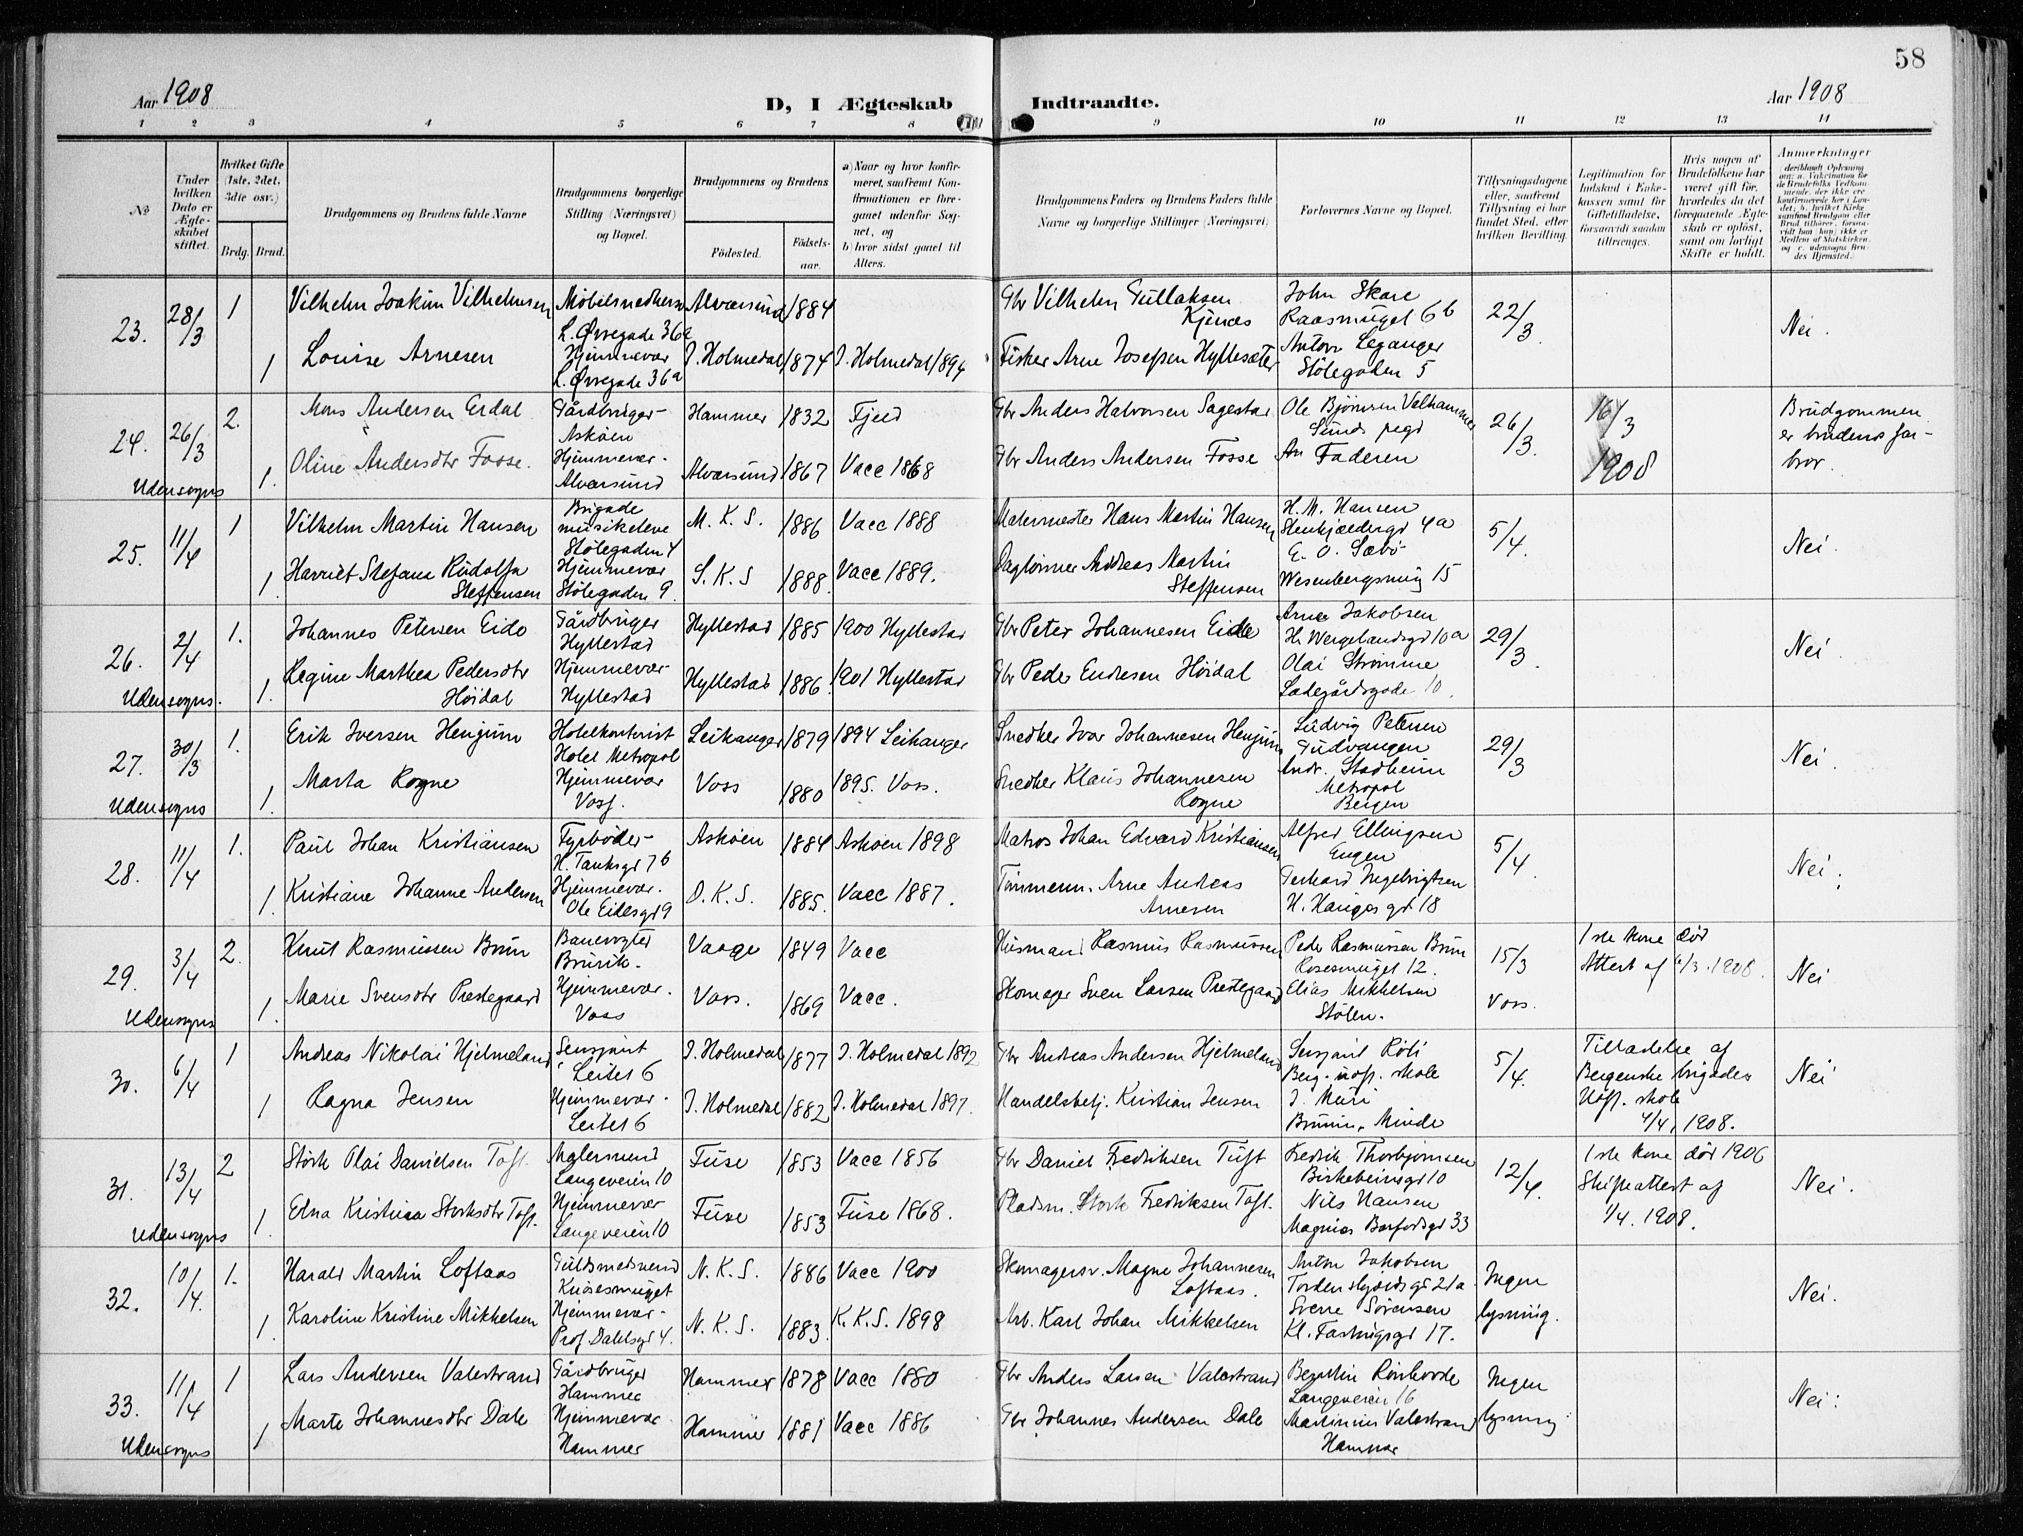 58
Aar 1908
D, I Ægteskab Indtraadte.
Aar 1908
1 2 3 4 5 6 7 8 9 10 11 12 13 14
No
Under hvilken Dato er Ægteskabet stiftet.
Hvilket Gifte (1ste, 2det, 3die osv.)
Brdg. Brud.
Brudgommens og Brudens fulde Navne
Brudgommens borgerlige Stilling (Næringsvei) og Bopæl.
Brudgommens og Brudens
Födested. Födselsaar.
a) Naar og hvor konfirmeret, saafremt Konfirmationen er foregaaet udenfor Sognet, og
b) hvor sidst gaaet til Alters.
Brudgommens Faders og Brudens Faders fulde Navne og borgerlige Stillinger (Næringsvei)
Forlovernes Navne og Bopæl.
Tillysningsdagene eller, saafremt Tillysning ei har fundet Sted, efter hvilken Bevilling.
Legitimation for Indskud i Enkekassen samt for Giftetilladelse, forsaavidt saadan tiltrænges.
Hvis nogen af Brudefolkene har været gift før, hvorledes da det foregaaende Ægteskab er opløst, samt om lovligt Skifte er holdt.
Anmærkninger
23. 28/3 1 Vilhelm Joakim Vilhelmsen
L. Øvregade 36a
Alversund 1884
Gbr Vilhelm Gullaksen
John Skare
6b
22/3
Nei.
1 Louise Arnesen
Hjemmevær
L. Øvregade 36a
J. Holmedal 1874 J. Holmedal 1894
Fisker Arne Josefsen Hyllesæter
Anton Leganger
Stølegaden 5
24. 26/3 2. Mons Andersen Erdal
Gårdbruger
Askøen
Hammer 1832 Fjeld
Gbr Anders Halvorsen Sagestad
Ole Bjørnsen Valhammer
26/3. 16/3
1908
Brudgommen
er brudens far-
bror.
Udensogns 1. Oline Andersdtr Fosse.
Hjemmevær.
Alversund
Alversund 1867 Vacc 1868
Gbr Anders Andersen Fosse
Faderen
25. 11/4 1 Vilhelm Martin Hansen
Brigade
musikelev
Stølegaden 4
M. K. S. 1886 Vacc 1888
Malermester Hans Martin Hansen
H. M. Hansen
4a
5/4.
Nei.
1. Harriet Stefane Rudolfa
Steffensen
Hjemmevær
Stølegaden 9.
S. K. S 1888. Vacc 1889.
Dagløinner Andreas Martin
Steffensen
E. O. Sæbø
15
26. 2/4 1. Johannes Petersen Eide
Gårdbruger
Hyllestad
Hyllestad 1885 1900 Hyllestad
Gbr Peter Johannesen Eide
Arne Jakobsen
H. Wergelandsgd 10a
29/3.
Nei.
Udensogns. 1. Regine Marthea Pedersdtr
Høidal
Hjemmevær
Hyllestad
Hyllestad 1886. 1901 Hyllestad
Gbr Peder Endresen Høidal
Olai Strømme
Ladegårdsgade 10.
27. 30/3 1. Erik Iversen Henjum
Hotelkontorist
Hotel Metropol
Leikanger 1879 1894 Leikanger
Snedker Ivar Johannesen Henjum
Ludvig Petersen
Gudvangen
29/3
Nei.
Udensogns 1. Marta Rogne
Hjemmevær
Voss.
Voss 1880 1895. Voss.
Snedker Klaus Johannesen
Rogne
Andr. Stadheim
Metropol
Bergen
28. 11/4 1. Paul Johan Kristiansen
Fyrbøder
H. Tanksgd 7b
Askøen 1884 Askøen 1898
Matros Johan Edvard Kristiansen
Alfred Ellingsen
Engen
5/4.
Nei.
1. Kristiane Johanne Andersen
Hjemmevær.
Ole Eidesgd 9
D. K. S. 1885. Vacc 1887.
Tømmerm. Arne Andreas
Arnesen
Gerhard Ingebrigtsen
H. Haugesgd. 18
29. 3/4 2. Knut Rasmussen Brun
Banevogter
Brurik.
Vaage 1849 Vacc
Husmand Rasmus Rasmussen
Peder Rasmussen Brun
Rosesmuget 12.
15/3
Voss.
1ste kone død
Attest af 6/3. 1908.
Nei
Udensogns 1. Marie Svensdtr Prestegaard
Hjemmevær.
Voss
Voss. 1869 Vacc.
Skomager Sven Larsen Prestegaard
Elias Mikkelsen
Stølen.
30. 6/4 1 Andreas Nikolai Hjelmeland
Sersjant
Leitet 6
J. Holmedal 1877 J. Holmedal 1892
Gbr Andreas Andersen Hjelmeland
Sersjant
Berg. uof. skole
5/4.
Tilladelse af
Bergenske brigades
Uof. skole
4/4. 1908.
Nei
1 Ragna Jensen
Hjemmevær.
Leitet 6
J. Holmedal 1882 J. Holmedal 1897.
Handelsbetj. Kristian Jensen
Minde
31. 13/4 2 Størk Olai Danielsen Toft.
Malersvend
Langeveien 10
Fuse 1853 Vacc 1856
Gbr Daniel Fredriksen Tuft
Fredrik Thorbjørnsen
Birkebeinsgd 10
12/4.
1ste kone død 1906
Skifteattest af
1/4. 1908.
Nei.
Udensogns 1. Edna Kristina Storksdtr Toft.
Hjemmevær
Langeveien 10
Fuse 1853 Fuse 1868.
Pladsm. Stork Fredriksen Toft.
Nils Hansen
Magnus Barfodsgd 33
32. 10/4. 1. Harald Martin Loftaas
Guldsmedsvend
N. K. S. 1886 Vacc 1900
Skomagersv. Magne Johannesen
Loftaas.
Anton Jakobsen
Tordenskjoldsgd 21a
Ingen
lysning.
Nei.
1. Karoline Kristine Mikkelsen
Hjemmevær
Prof Dahlsgd 4.
N. K. S. 1883. K. K. S. 1898
Arb. Karl Johan Mikkelsen
Sverre Sørensen
17.
33. 11/4 1 Lars Andersen Valestrand
Gårdbruger
Hammer
Hammer 1878 Vacc 1880
Gbr Anders Larsen Valestrand
Langeveien 16
Ingen
lysning
Nei.
Udensogns 1 Marte Johannesdtr Dale
Hjemmevær
Hammer
Hammer 1881 Vacc 1886
Gbr Johannes Andersen Dale
Martinius Valestrand
Hammer